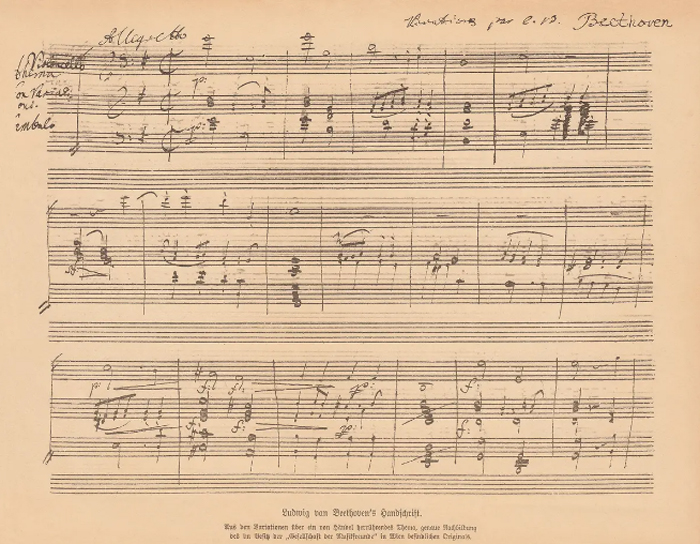 Variations par L. v. Beethoven
Allegretto
Violoncello
p:
p:
p:
f:
f:
p:
f:
f:
p:
f:
f:
Ludwig van Beethoven's Handschrift.
Aus den Variationen über ein von Händel herrührendes Thema, genaue Nachbildung
des im Besitz der „Gesellschaft der Musikfreunde" in Wien befindlichen Originals.